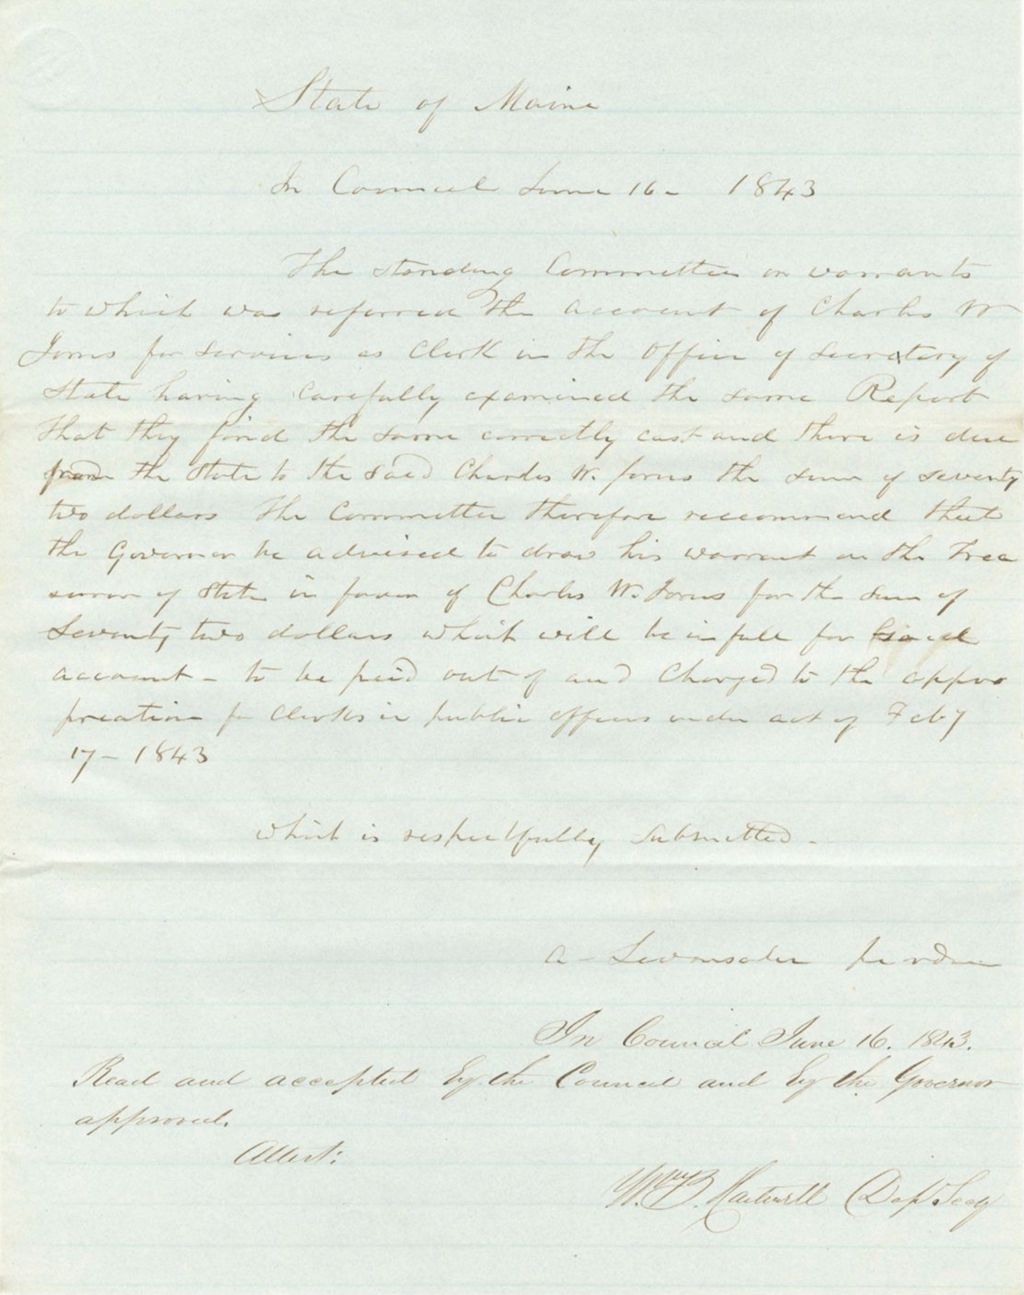 State of Maine
In Council June 16 - 1843
The standing Committee on warrants
to which was referred the account of Charles W
Jones for services as Clerk in the office of Secretary of
State having carefully examined the same Report
that they find the same correctly cast and there is due
from the State to the said Charles W. Jones the sum of seventy
two dollars The Committee therefore reccommend that
the Governor be advised to draw his warrant on the Trea
surer of State in favor of Charles W. Jones for the sum of
Seventy two dollars which will be in full for said
account - to be paid out of and charged to the appro
preation for clerks in public offices under act of Feby
17 - 1843
which is respectfully Submitted -
A - Levensaler per order
In Council June 16. 1843.
Read and accepted by the Council and by the Governor
approved.
Attest:
Wm B. Hartwell Dep. Secy